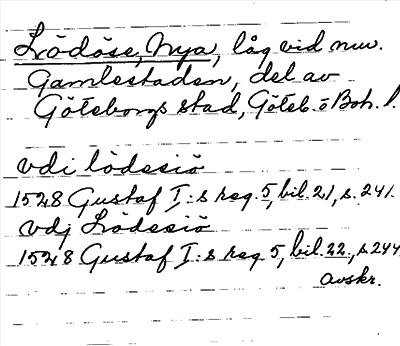 Lödöse, Nya, låg vid nuv.
Gamlestaden, del av
Göteborgs stad, Göteb. o Boh. l.
vdi lödesiö
1528 Gustaf I:s reg. 5, bil. 21, s. 241.
vdj Lödesiö
1528 Gustaf I:s reg 5, bil. 22, s 244
avskr.